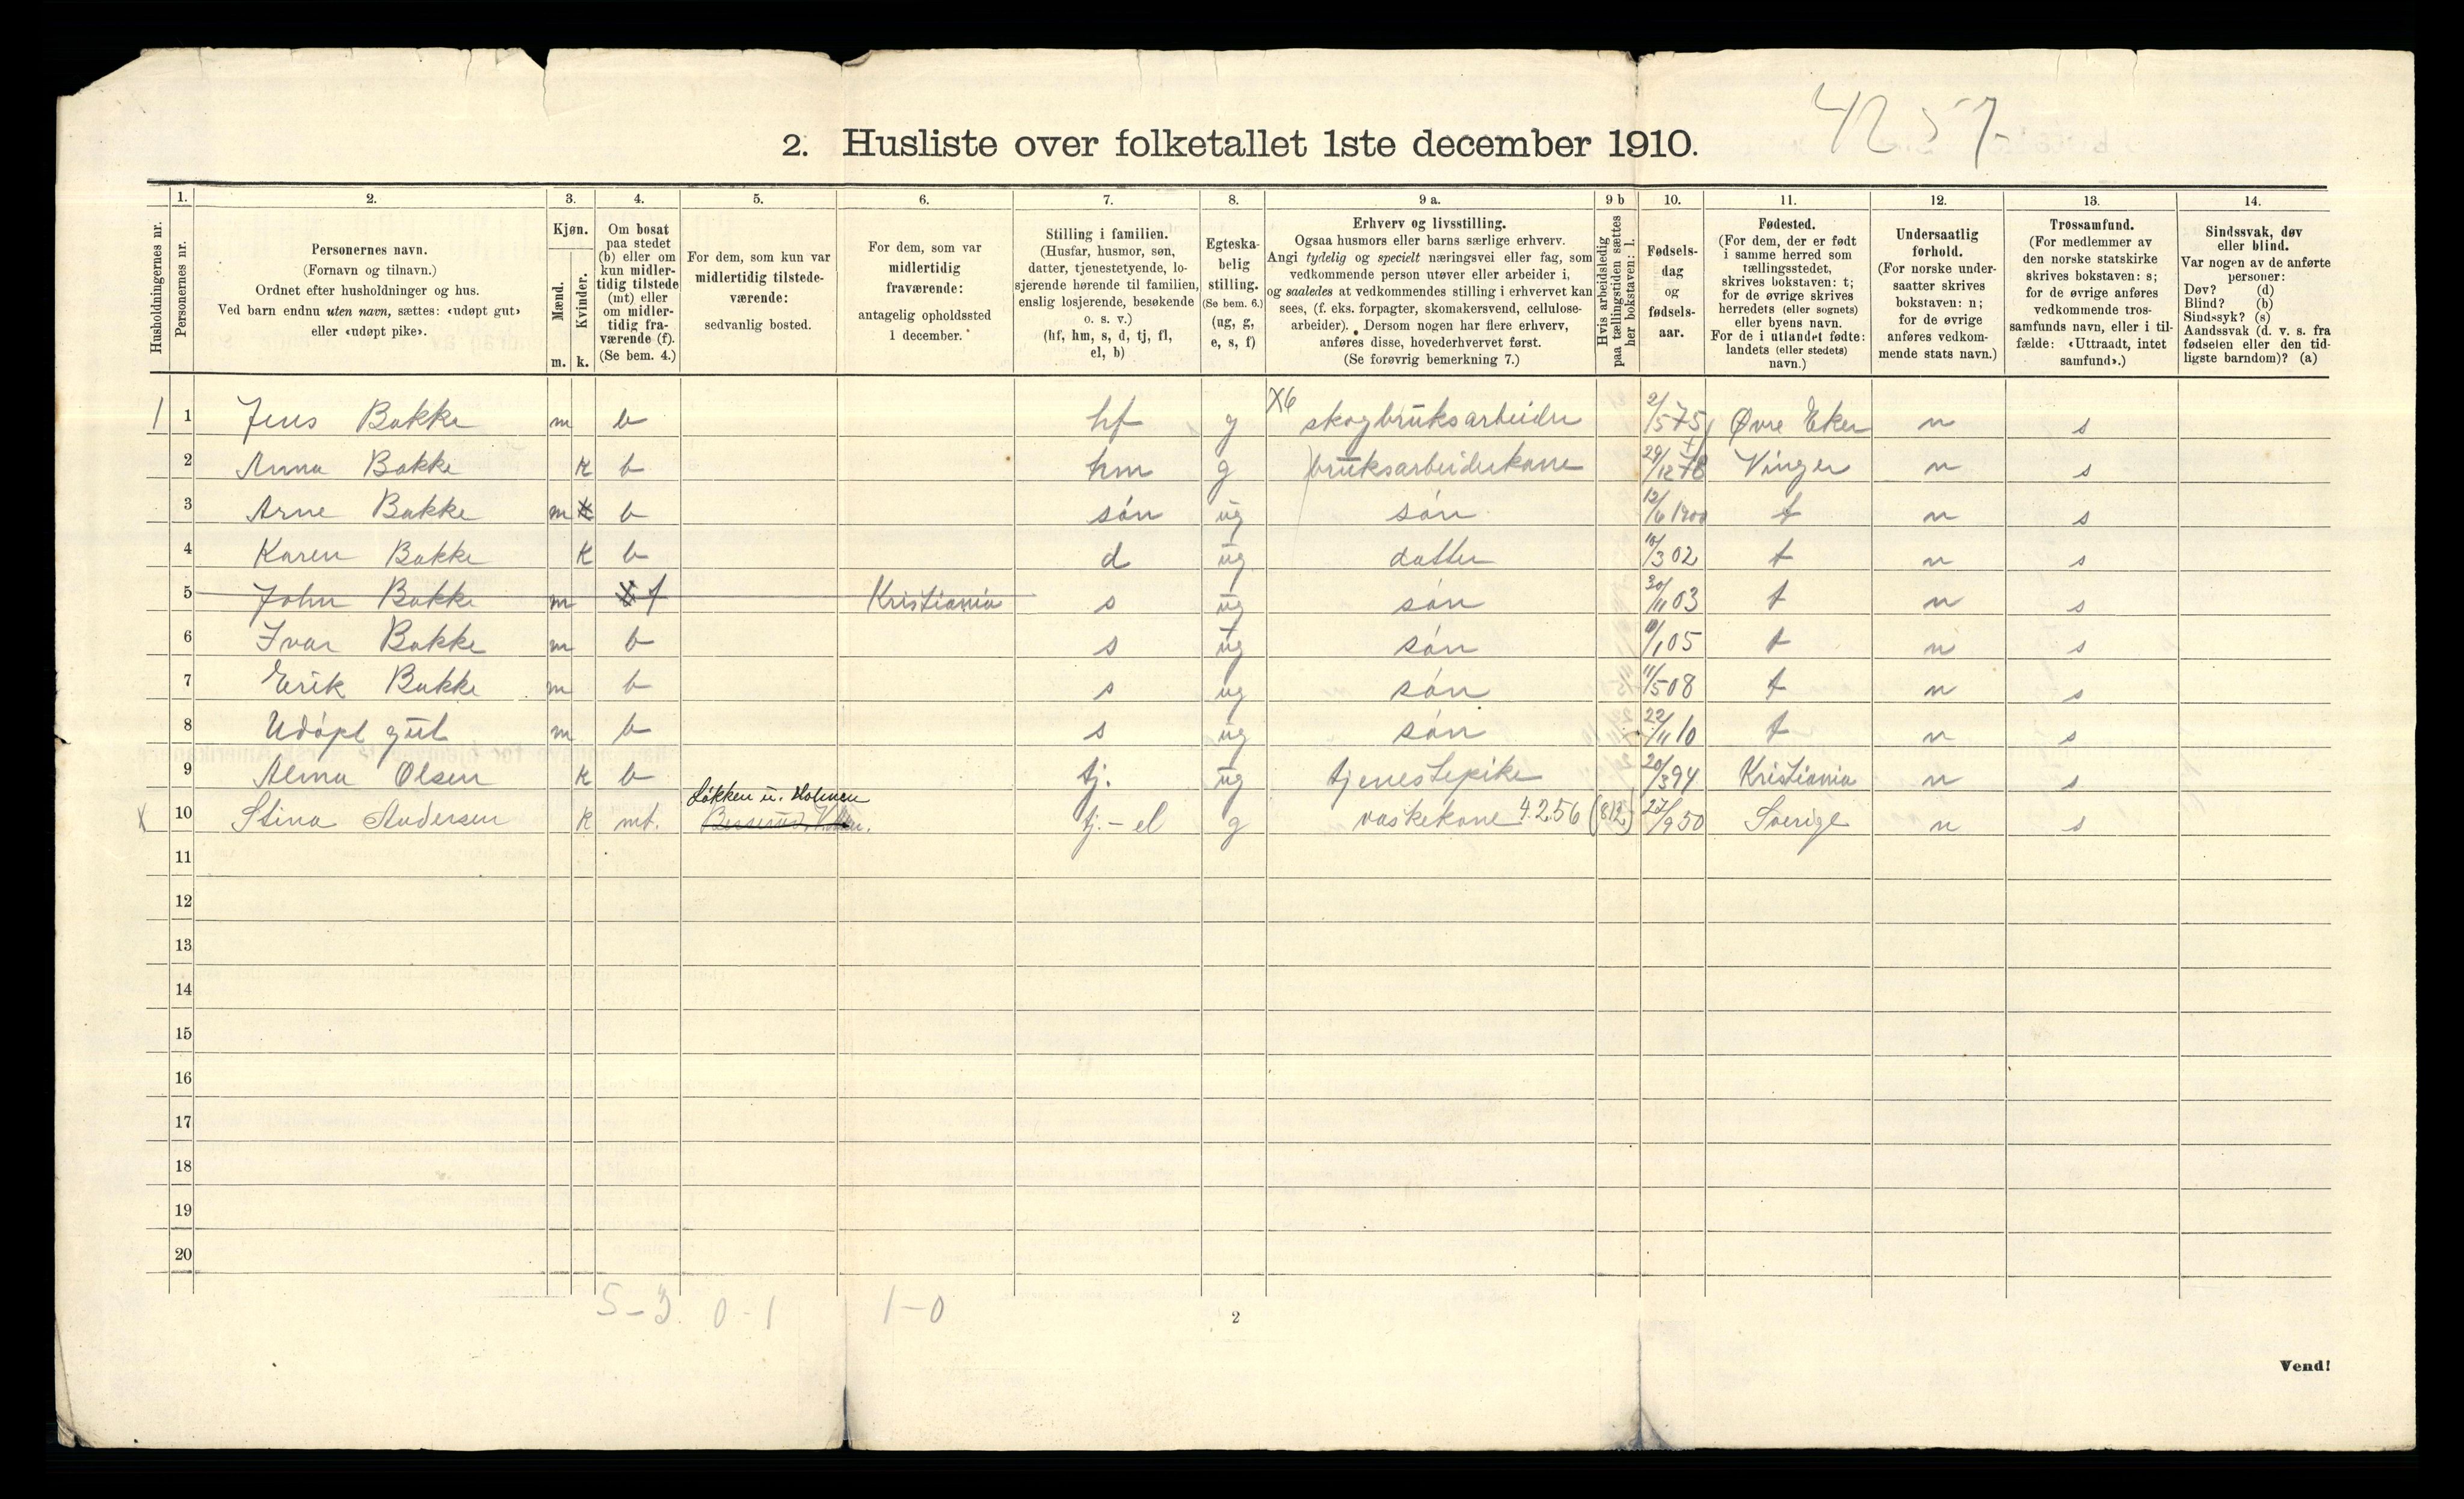 4257
2. Husliste over folketallet 1ste december 1910.
Husholdningernes nr.
1. Personernes nr.
2. Personernes navn.
(Fornavn og tilnavn.)
Ordnet efter husholdninger og hus.
Ved barn endnu uten navn, sættes: «udøpt gut»
eller «udøpt pike».
3. Kjøn.
Mænd. m.
Kvinder. k.
4. Om bosat
paa stedet
(b) eller om
kun midler-
tidig tilstede
(mt) eller
om midler-
tidig fra-
værende (f).
(Se bem. 4.)
5. For dem, som kun var
midlertidig tilstede-
værende:
sedvanlig bosted.
6. For dem, som var
midlertidig
fraværende:
antagelig opholdssted
1 december.
7. Stilling i familien.
(Husfar, husmor, søn,
datter, tjenestetyende, lo-
sjerende hørende til familien,
enslig losjerende, besøkende
o. s. v.)
(hf, hm, s, d, tj, fl,
el, b)
8. Egteska-
belig
stilling.
(Se bem. 6.)
(ug, g,
e, s, f)
9 a. Erhverv og livsstilling.
Ogsaa husmors eller barns særlige erhverv.
Angi tydelig og specielt næringsvei eller fag, som
vedkommende person utøver eller arbeider i,
og saaledes at vedkommendes stilling i erhvervet kan
sees, (f. eks. forpagter, skomakersvend, cellulose-
arbeider). Dersom nogen har flere erhverv,
anføres disse, hovederhvervet først.
(Se forøvrig bemerkning 7.)
9 b Hvis arbeidsledig
paa tællingstiden sættes
her bokstaven: l.
10. Fødsels-
dag
og
fødsels-
aar.
11. Fødested.
(For dem, der er født
i samme herred som
tællingsstedet,
skrives bokstaven: t;
for de øvrige skrives
herredets (eller sognets)
eller byens navn.
For de i utlandet fødte:
landets (eller stedets)
navn.)
12. Undersaatlig
forhold.
(For norske under-
saatter skrives
bokstaven: n;
for de øvrige
anføres vedkom-
mende stats navn.)
13. Trossamfund.
(For medlemmer av
den norske statskirke
skrives bokstaven: s;
for de øvrige anføres
vedkommende tros-
samfunds navn, eller i til-
fælde: «Uttraadt, intet
samfund».)
14. Sindssvak, døv
eller blind.
Var nogen av de anførte
personer:
Døv? (d)
Blind? (b)
Sindssyk? (s)
Aandssvak (d. v. s. fra
fødselen eller den tid-
ligste barndom)? (a)
1 1 Jens Bakke m b hf g X6 skogbruksarbeider 2/5 75 Øvre Eker n s
2 Anna Bakke k b hm g bruksarbeiderkone 29/12 78 Vinger n s
3 Arne Bakke m k b søn ug søn 12/6 1900 t n s
4 Karen Bakke k b d ug datter 10/3 02 t n s
5 John Bakke m f Kristiania s ug søn 30/11 03 t n s
6 Ivar Bakke m b s ug søn /1 05 t n s
7 Erik Bakke m b s ug søn 11/5 08 t n s
8 Udøpt gut m b s ug søn 22/11 10 t n s
9 Alma Olsen k b tj. ug tjenestepike 20/3 94 Kristiania n s
Løkken u. Holmen
x 10 Stina Andersen k mt. tj. - el g vaskekone 4.2.56 (812) 27/9 50 Sverige n s
11
12
13
14
15
16
17
18
19
20
5-3 0-1 1-0
2
Vend!